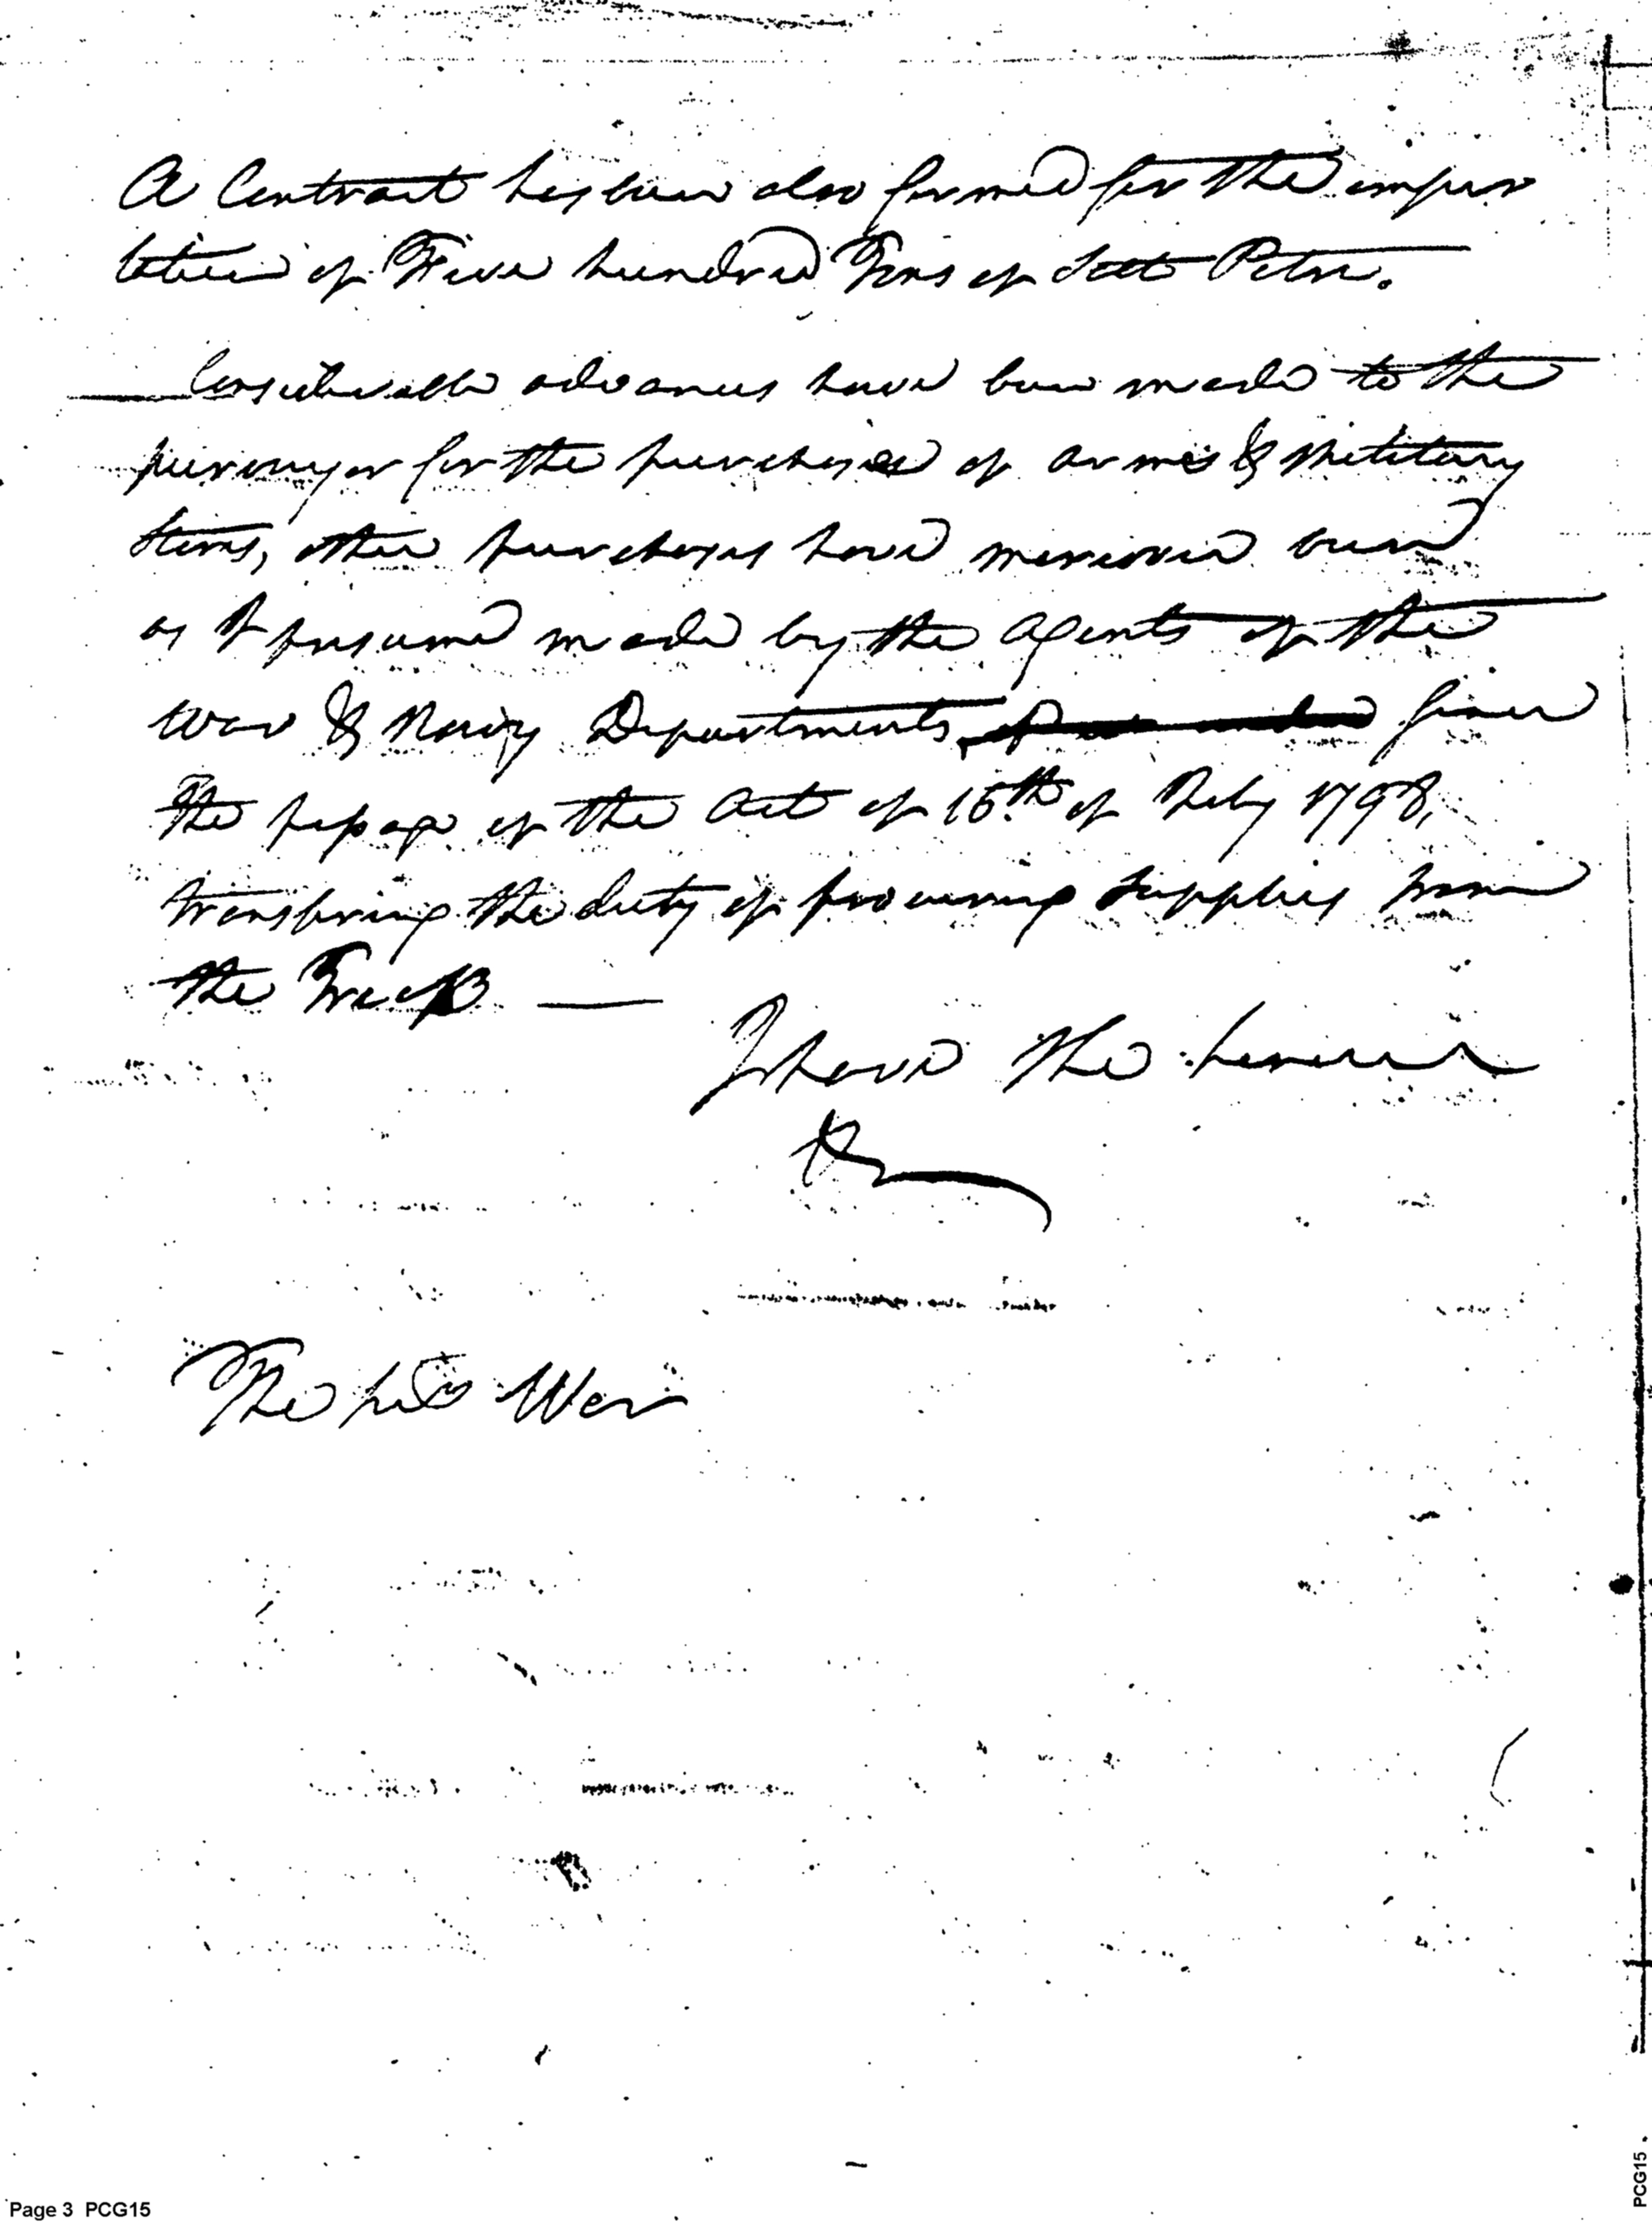 A Contract has been also formed for the impor
tation of Five hundred Tons of Salt Petre.
Considerable advances have been made to the
purveyor for the purchase of arms & Military
Stores, other purchases have moreover been
as I presume made by the Agents of the
War & Navy Departments, since
the passage of the Act of 16th of July 1798,
transfering the duty of procuring supplies from
the Treasy
I have the honour
The Secy War
Page 3 PCG15
PCG15